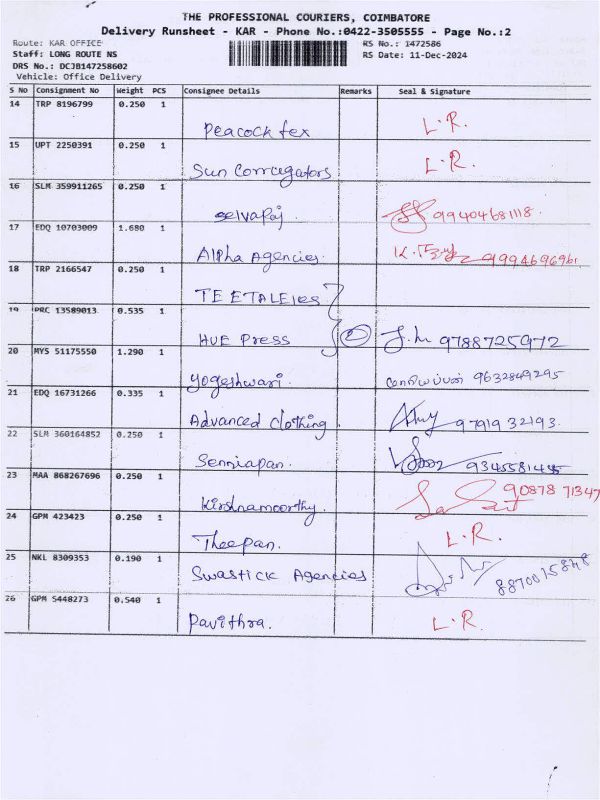 THE PROFESSIONAL COURIERS, COIMBATORE
Delivery Runsheet - KAR - Phone No.:0422-3505555 - Page No.:2
Route: KAR OFFICE
RS No.: 1472586
Staff: LONG ROUTE NS
RS Date: 11-Dec-2024
DRS No.: DCJB147258602
Vehicle: Office Delivery
S No Consignment No Weight PCS Consignee Details Remarks Seal & Signature
14 TRP 8196799 0.250 1
Peacock tex L.R.
15 UPT 2250391 0.250 1
Sun Corrugators L.R.
16 SLM 359911265 0.250 1
Selvaraj 9940468118.
17 EDQ 10703009 1.680 1
Alpha Agencies. 9994696961
18 TRP 2166547 0.250 1
19 PRC 13589013 0.535 1
HUE Press 2 9788725972
20 MYS 51175550 1.290 1
Yogeshwari. 9632849295
21 EDQ 16731266 0.335 1
Advanced clothing 97919 32193.
22 SLM 360164852 0.250 1
Senniapan. 9345581445
23 MAA 868267696 0.250 1
Kirshnamoorthy. 90878 71347
24 GPM 423423 0.250 1
Theepan. L.R.
25 NKL 8309353 0.190 1
Swastick Agencies 8870015848
26 GPM 5448273 0.540 1
Pavithra. L.R.